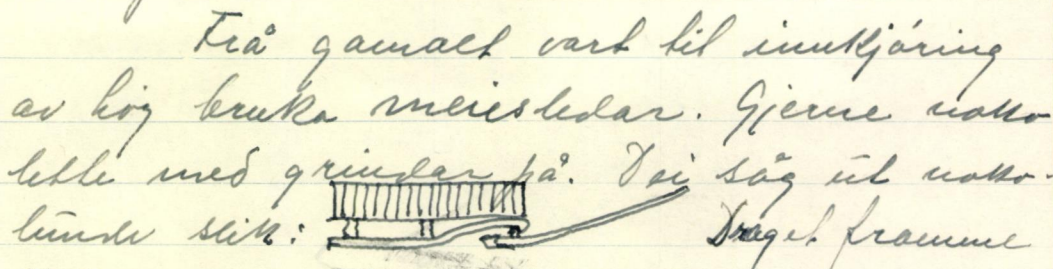 Frå gamalt vart til innkjöring
av höy bruka meiesledar. Gjerne noko
lette med grindar på. Dei såg út noko-
lunde slik:
Draget framme